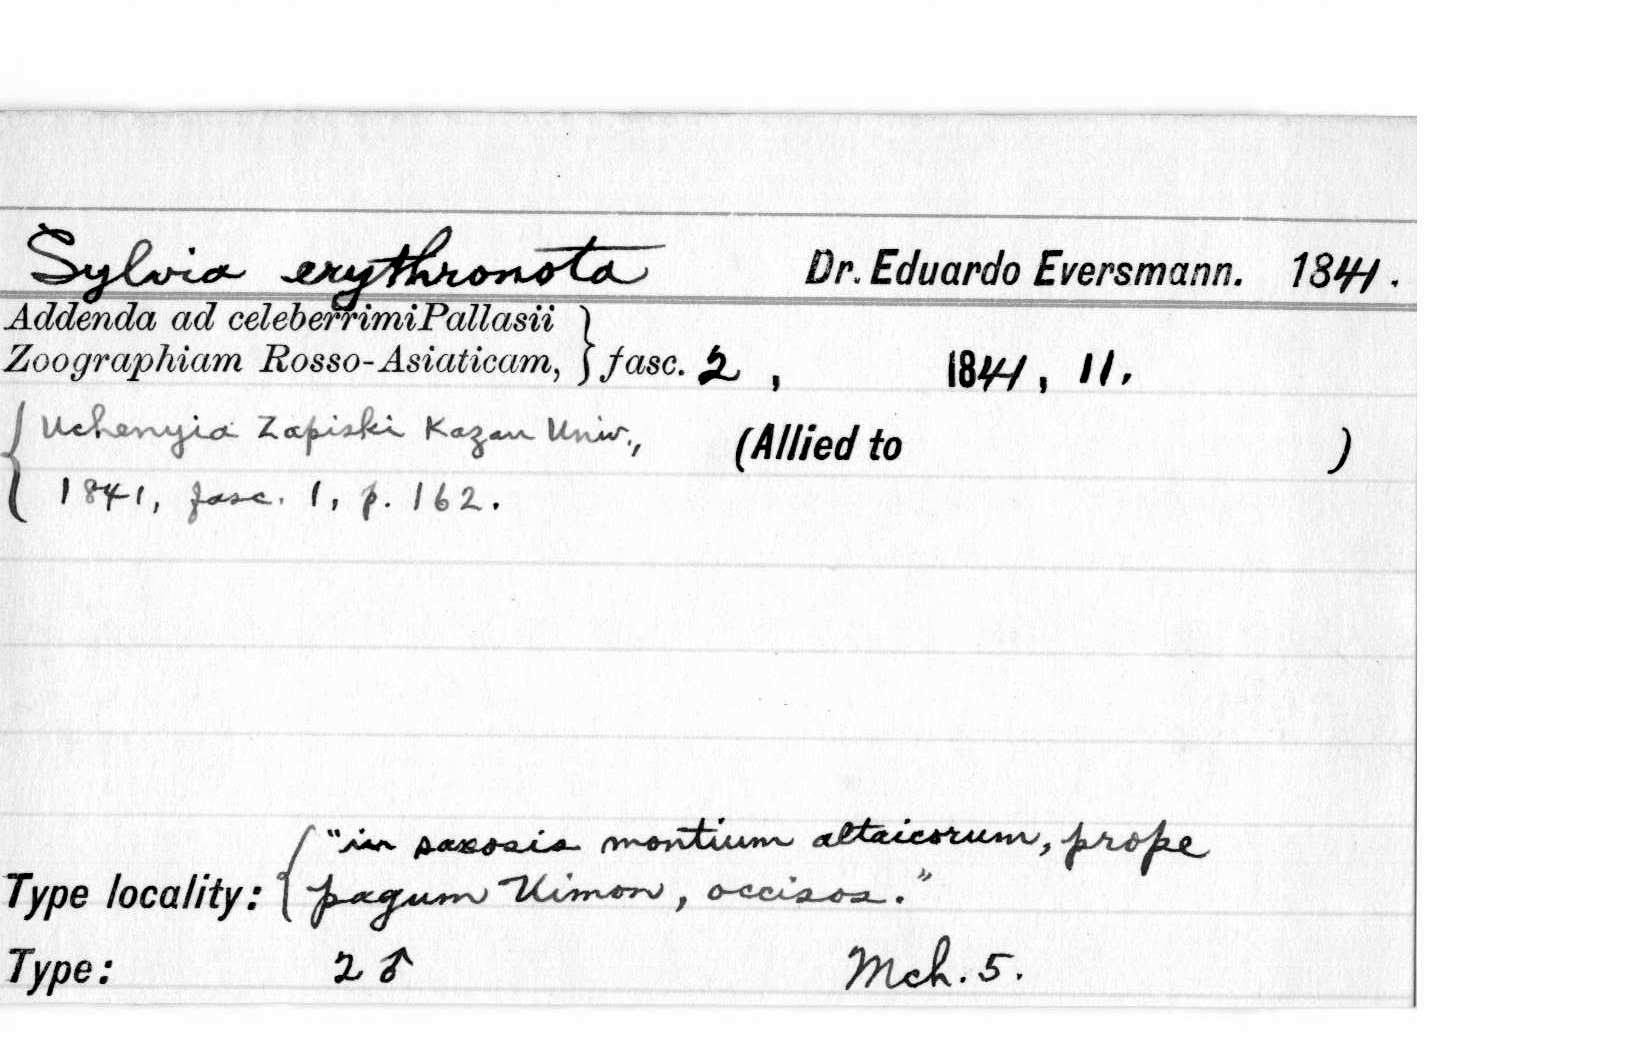 Sylvia erythronota Dr. Eduardo Eversmann. 1841.
Addenda ad celeberrimi Pallasii
Zoographiam Rosso-Asiaticam, } fasc. 2, 1841, 11.
{ Uchenyia Zapiski Kazan Univ., (Allied to )
1841, fasc. 1, p. 162.
{ "in saxosis montium altaicorum, prope
Type locality: pagum Uimon, occisos."
Type: 2 ♂ Mch. 5.